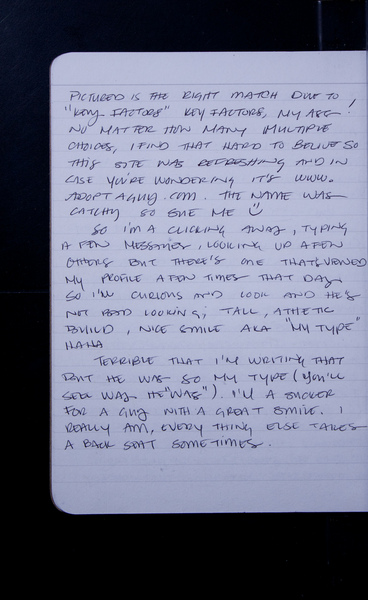 PICTURED IS THE RIGHT MATCH DUE TO
"KEY FACTORS" KEY FACTORS, MY ASS!
NO MATTER HOW MANY MULTIPLE
CHOICES, I FIND THAT HARD TO BELIVE SO
THIS SITE WAS REFRESHING AND IN
CASE YOU'RE WONDERING IT'S WWW.
ADOPTAGUY.COM. THE NAME WAS
CATCHY SO SUE ME
SO I'M A CLICKING AWAY, TYPING
A FEW MESSAGES, LOOKING UP A FEW
OTHERS BUT THERE'S ONE THAT VIEWED
MY PROFILE A FEW TIMES THAT DAY
SO I'M CURIOUS AND LOOK AND HE'S
NOT BAD LOOKING; TALL, ATHETIC
BUILD, NICE SMILE AKA "MY TYPE"
HAHA
TERRIBLE THAT I'M WRITING THAT
BUT HE WAS SO MY TYPE (YOU'LL
SEE WHY HE "WAS"). I'M A SUCKER
FOR A GUY WITH A GREAT SMILE. I
REALLY AM, EVERY THING ELSE TAKES
A BACK SEAT SOMETIMES.